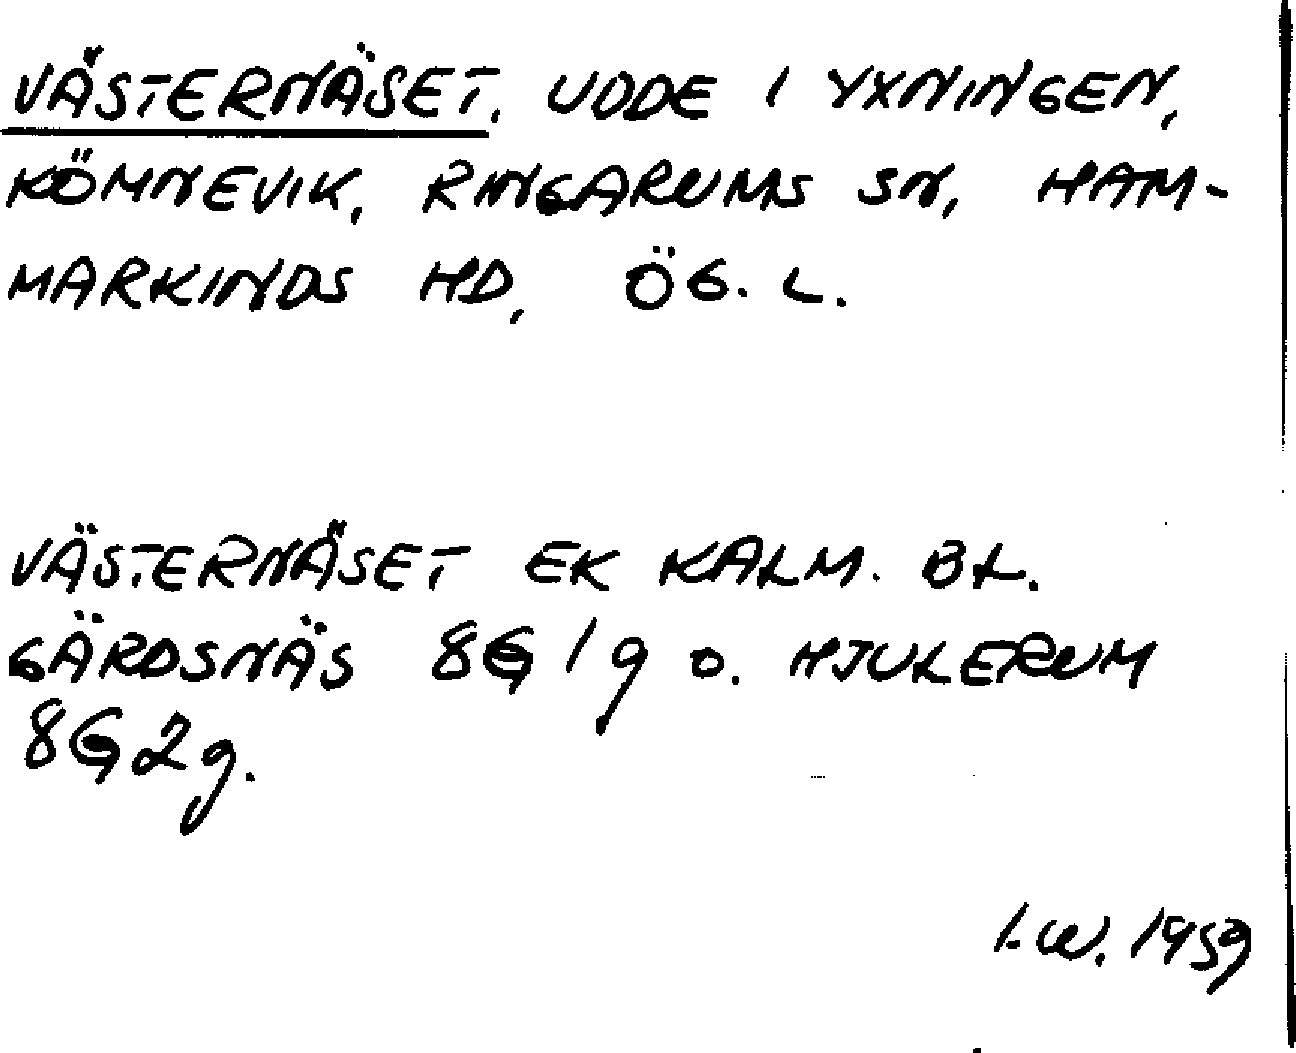 VÄSTERNÄSET. UDDE I YXNINGEN,
KÖMNEVIK, RINGARUMS SN, HAM-
MARKINDS HD, ÖG. L.
VÄSTERNÄSET EK KALM. BL.
GÄRDSNÄS 8G 1g o. HJULERUM
8G 2g.
I.W. 1959